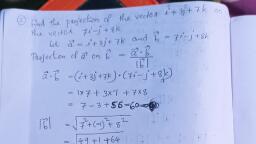 ② Find the projection of the vector i + 3j + 7k on
the vector 7i - j + 8k
Let a⃗ = i + 3j + 7k and b⃗ = 7i - j + 8k
Projection of a⃗ on b⃗ = a⃗ · b⃗ / |b⃗|
a⃗ · b⃗ = (i + 3j + 7k) · (7i - j + 8k)
= 1×7 + 3× + 7×8
= 7 - 3 + 56 = 60
|b⃗| = √7² + (-1)² + 8²
= √49 + 1 + 64